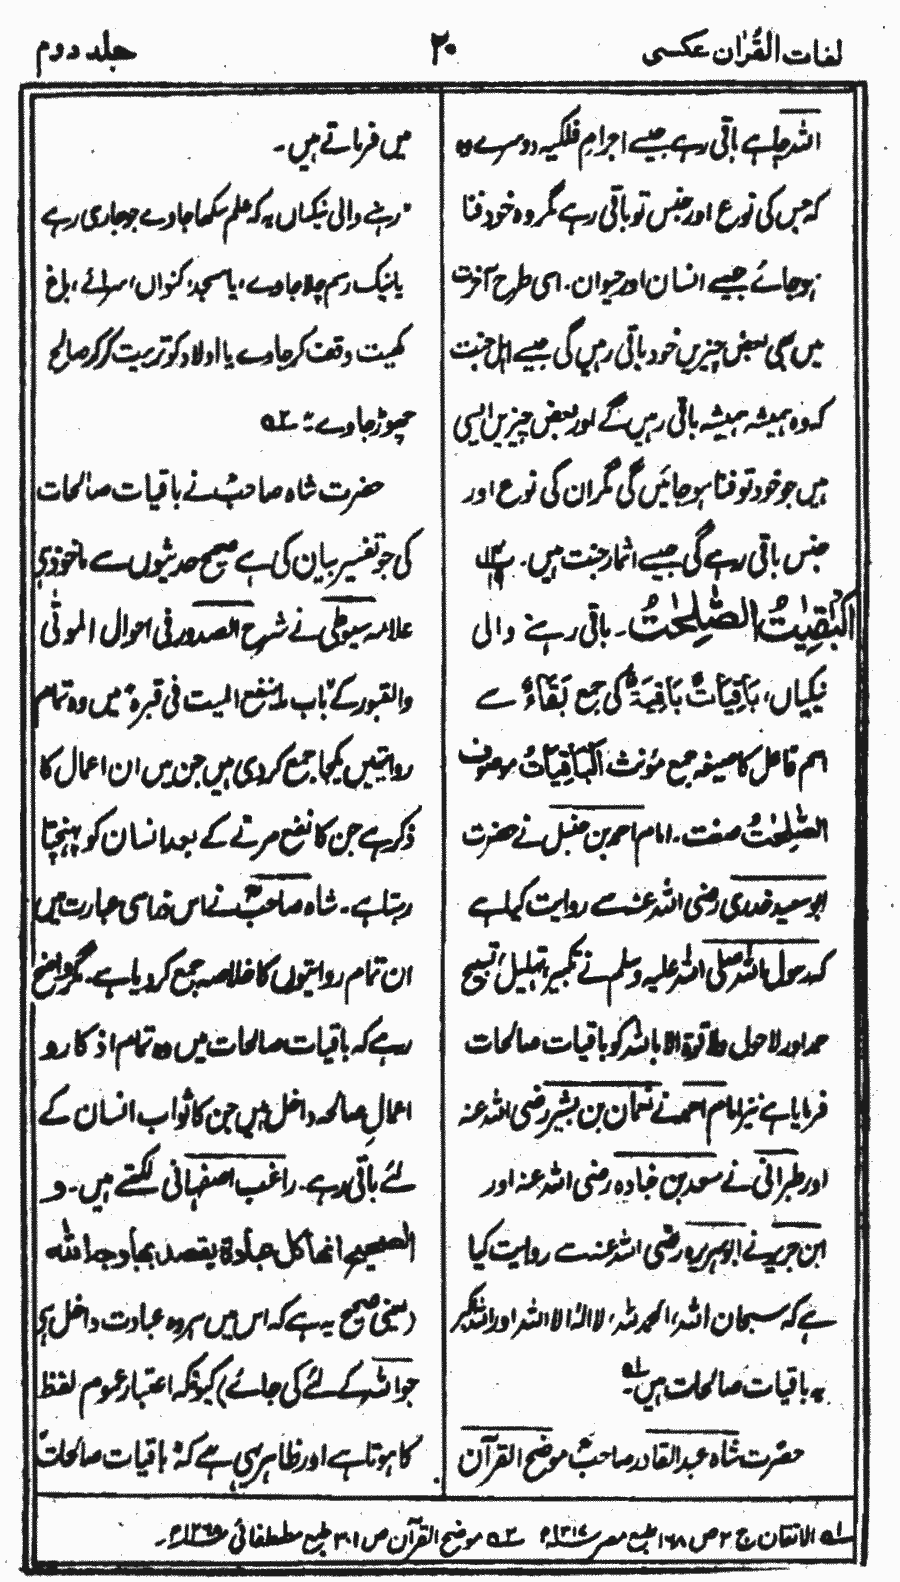 لغات القرآن عکسی
۲۰
جلد دوم
اللہ چاہے باقی رہے جیسے اجرامِ فلکیہ دوسرے وہ
کہ جس کی نوع اور جنس تو باقی رہے مگر وہ خود فنا
ہو جائے جیسے انسان اور حیوان۔ اسی طرح آخرت
میں بھی بعض چیزیں خود باقی رہیں گی جیسے اہل جنت
کہ وہ ہمیشہ ہمیشہ باقی رہیں گے اور بعض چیزیں ایسی
ہیں جو خود تو فنا ہو جائیں گی مگر ان کی نوع اور
جنس باقی رہے گی جیسے اثمار جنت ہیں۔
اَلْبٰقِیٰتُ الصّٰلِحٰتُ ۔ باقی رہنے والی
نیکیاں، بَاقِیَاتٌ بَاقِیَۃٌ کی جمع بَقَاءٌ سے
اسم فاعل کا صیغہ جمع مؤنث اَلْبَاقِیَاتُ موصوف
الصّٰلِحٰتُ صفت۔ امام احمد بن حنبل نے حضرت
ابو سعید خدری رضی اللہ عنہ سے روایت کیا ہے
کہ رسول اللہ صلی اللہ علیہ وسلم نے تکبیر، تہلیل، تسبیح
حمد اور لا حول ولا قوۃ الا باللہ کو باقیات صالحات
فرمایا ہے نیز امام احمد نے نعمان بن بشیر رضی اللہ عنہ
اور طبرانی نے سعد بن عبادہ رضی اللہ عنہ اور
ابن جریر نے ابو ہریرہ رضی اللہ عنہ سے روایت کیا
ہے کہ سبحان اللہ، الحمد للہ، لا الہ الا اللہ اور اللہ اکبر
یہ باقیات صالحات ہیں۔ لہ
حضرت شاہ عبد القادر صاحبؒ موضح القرآن
میں فرماتے ہیں۔
"رہنے والی نیکیاں یہ کہ علم سکھا جاوے جو جاری رہے
یا نیک رسم چلا جاوے، یا مسجد، کنواں، سرائے، باغ
کھیت وقف کر جاوے یا اولاد کو تربیت کر کر صالح
چھوڑ جاوے" ۲ہ
حضرت شاہ صاحبؒ نے باقیات صالحات
کی جو تفسیر بیان کی ہے صحیح حدیثوں سے ماخوذ ہے
علامہ سیوطی نے شرح الصدور فی احوال الموتیٰ
والقبور کے باب ما ینفع المیت فی قبرہ میں وہ تمام
روایتیں یکجا جمع کر دی ہیں جن میں ان اعمال کا
ذکر ہے جن کا نفع مرنے کے بعد انسان کو پہنچتا
رہتا ہے۔ شاہ صاحبؒ نے اس ذرا سی عبارت میں
ان تمام روایتوں کا خلاصہ جمع کر دیا ہے۔ مگر واضح
رہے کہ باقیات صالحات میں وہ تمام اذکار و
اعمالِ صالحہ داخل ہیں جن کا ثواب انسان کے
لئے باقی رہے۔ راغب اصفہانی لکھتے ہیں۔ و
الصحیح انھا کل عبادۃ یقصد بھا وجہ اللہ
(یعنی صحیح یہ ہے کہ اس میں ہر وہ عبادت داخل ہے
جو اللہ کے لئے کی جائے) کیونکہ اعتبار عموم لفظ
کا ہوتا ہے اور ظاہر ہی ہے کہ باقیات صالحات
۱ہ الاتقان ج ۲ ص ۱۶۸ طبع مصر ۱۳۱۷ھ ۲ہ موضح القرآن ص ۳۰۱ طبع مصطفائی